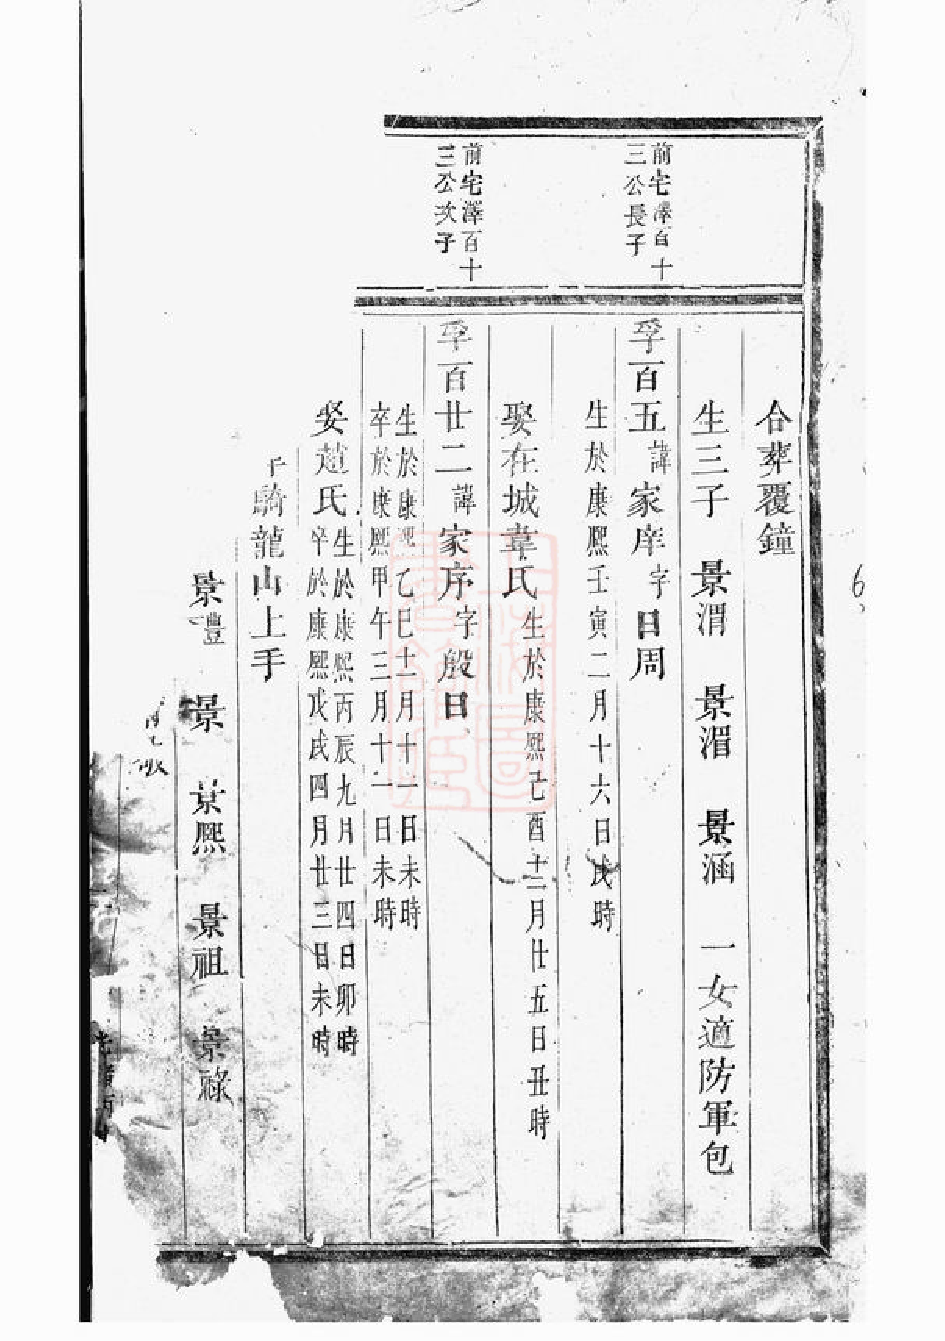 合葬覆鐘
生三子 景渭 景湄 景涵 一女適防軍包
前宅澤百十
三公長子
孚百五 諱 家庠 字 日周
生於康熙壬寅二月十六日戌時
娶在城韋氏 生於康熙己酉十二月廿五日丑時
前宅澤百十
三公次子
孚百廿二 諱 家序 字 殷日
生於康熙乙巳十一月十一日未時
卒於康熙甲午三月十一日未時
娶趙氏 生於康熙丙辰九月廿四日卯時
卒於康熙戊戌四月廿三日未時
騎龍山上手
景灃 景 景熙 景祖 景祿
6